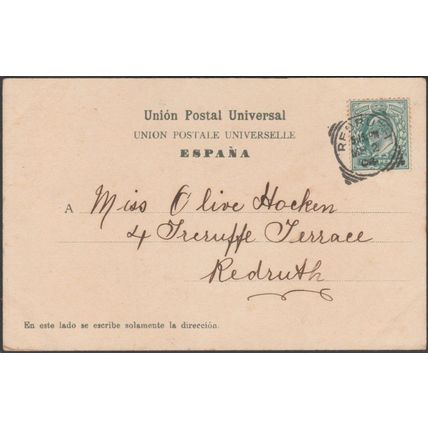 Unión Postal Universal
UNION POSTALE UNIVERSELLE
ESPAÑA
A Miss Olive Hocken
4 Treruffe Terrace
Redruth
En este lado se escribe solamente la dirección.
04